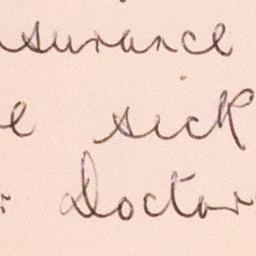 surance
e sick
: Doctor